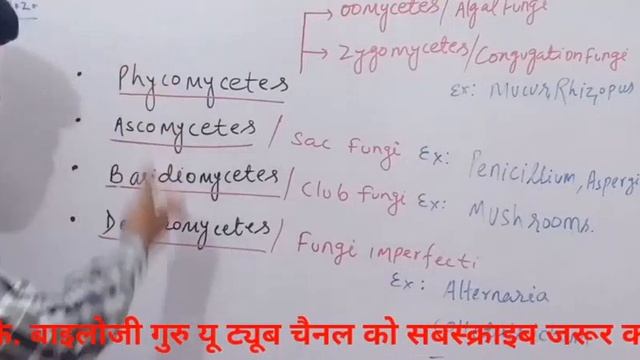 oomycetes/Algal fungi
Zygomycetes/Congugation fungi
Ex: Mucur, Rhizopus
Phycomycetes
Ascomycetes / Sac fungi Ex: Penicillium, Aspergi
Basidiomycetes / Club fungi Ex: Mushrooms.
/ Fungi imperfecti
Ex: Alternaria
बाइलोजी गुरु यू ट्यूब चैनल को सबस्क्राइब जरूर